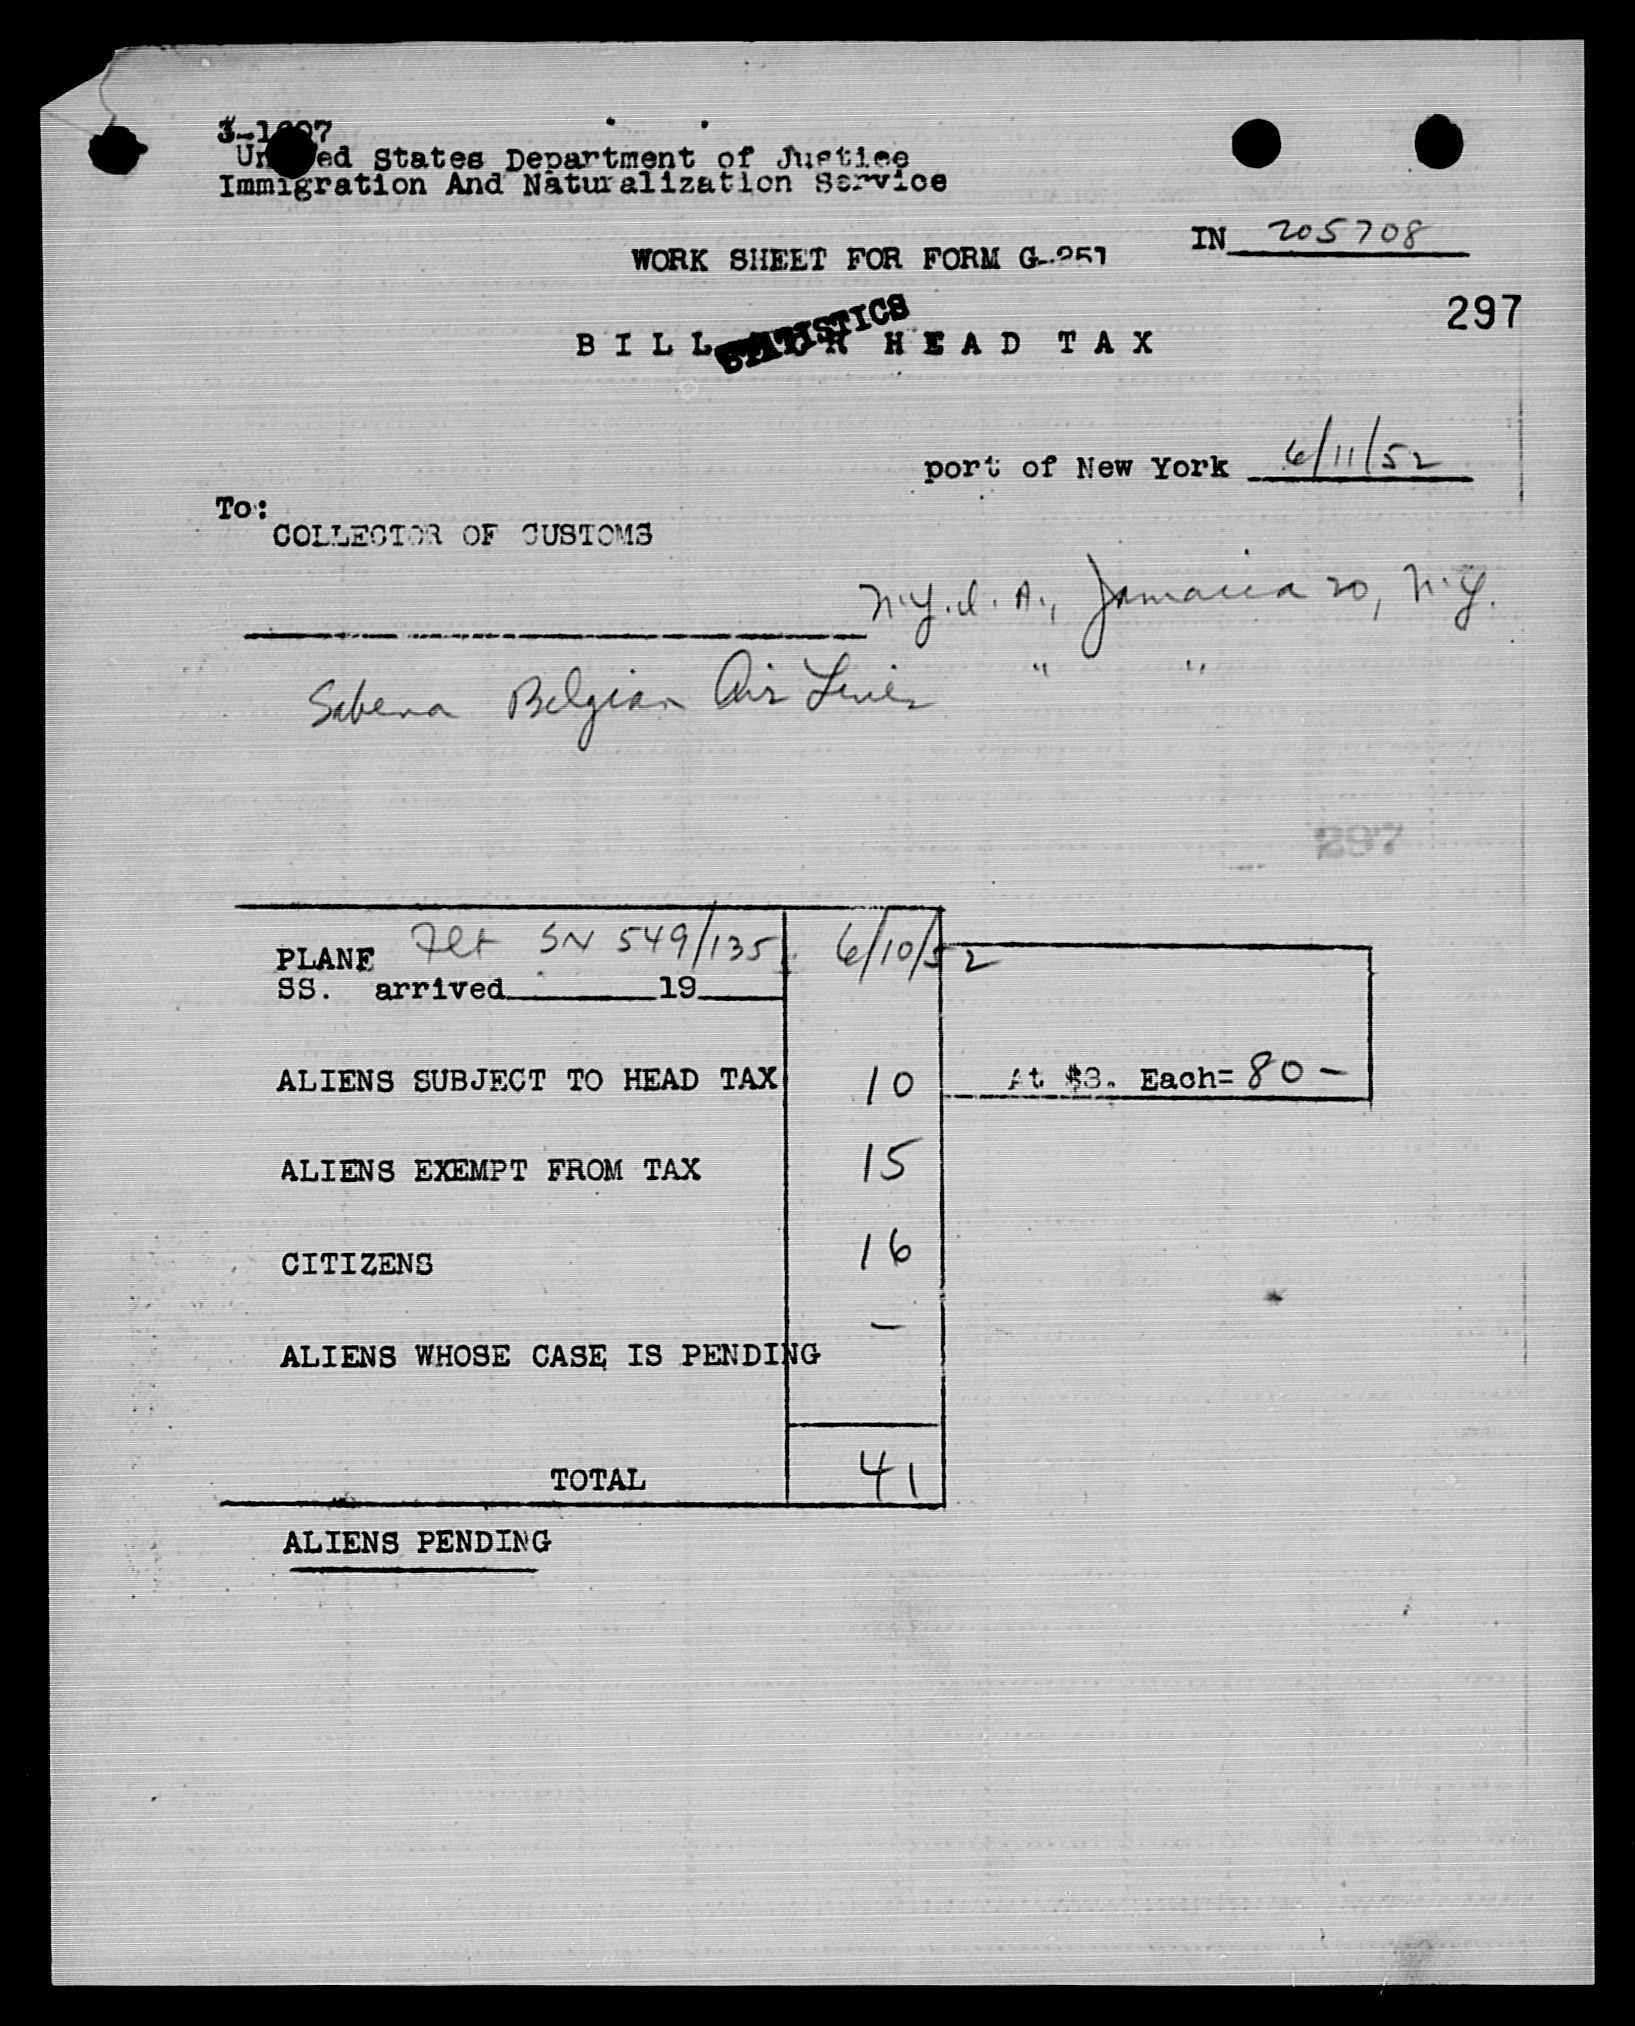 United States Department of Justice
Immigration And Naturalization Service
IN 205708
WORK SHEET FOR FORM G-251
297
STATISTICS
BILL FOR HEAD TAX
port of New York 6/11/52
To:
COLLECTOR OF CUSTOMS
N.Y.I.A., Jamaica 20, N.Y.
Sabena Belgian Air Lines " "
297
PLANE Flt SN 549/135 6/10/52
SS. arrived 19
ALIENS SUBJECT TO HEAD TAX 10 At $8. Each= 80 -
ALIENS EXEMPT FROM TAX 15
CITIZENS 16
ALIENS WHOSE CASE IS PENDING -
TOTAL 41
ALIENS PENDING